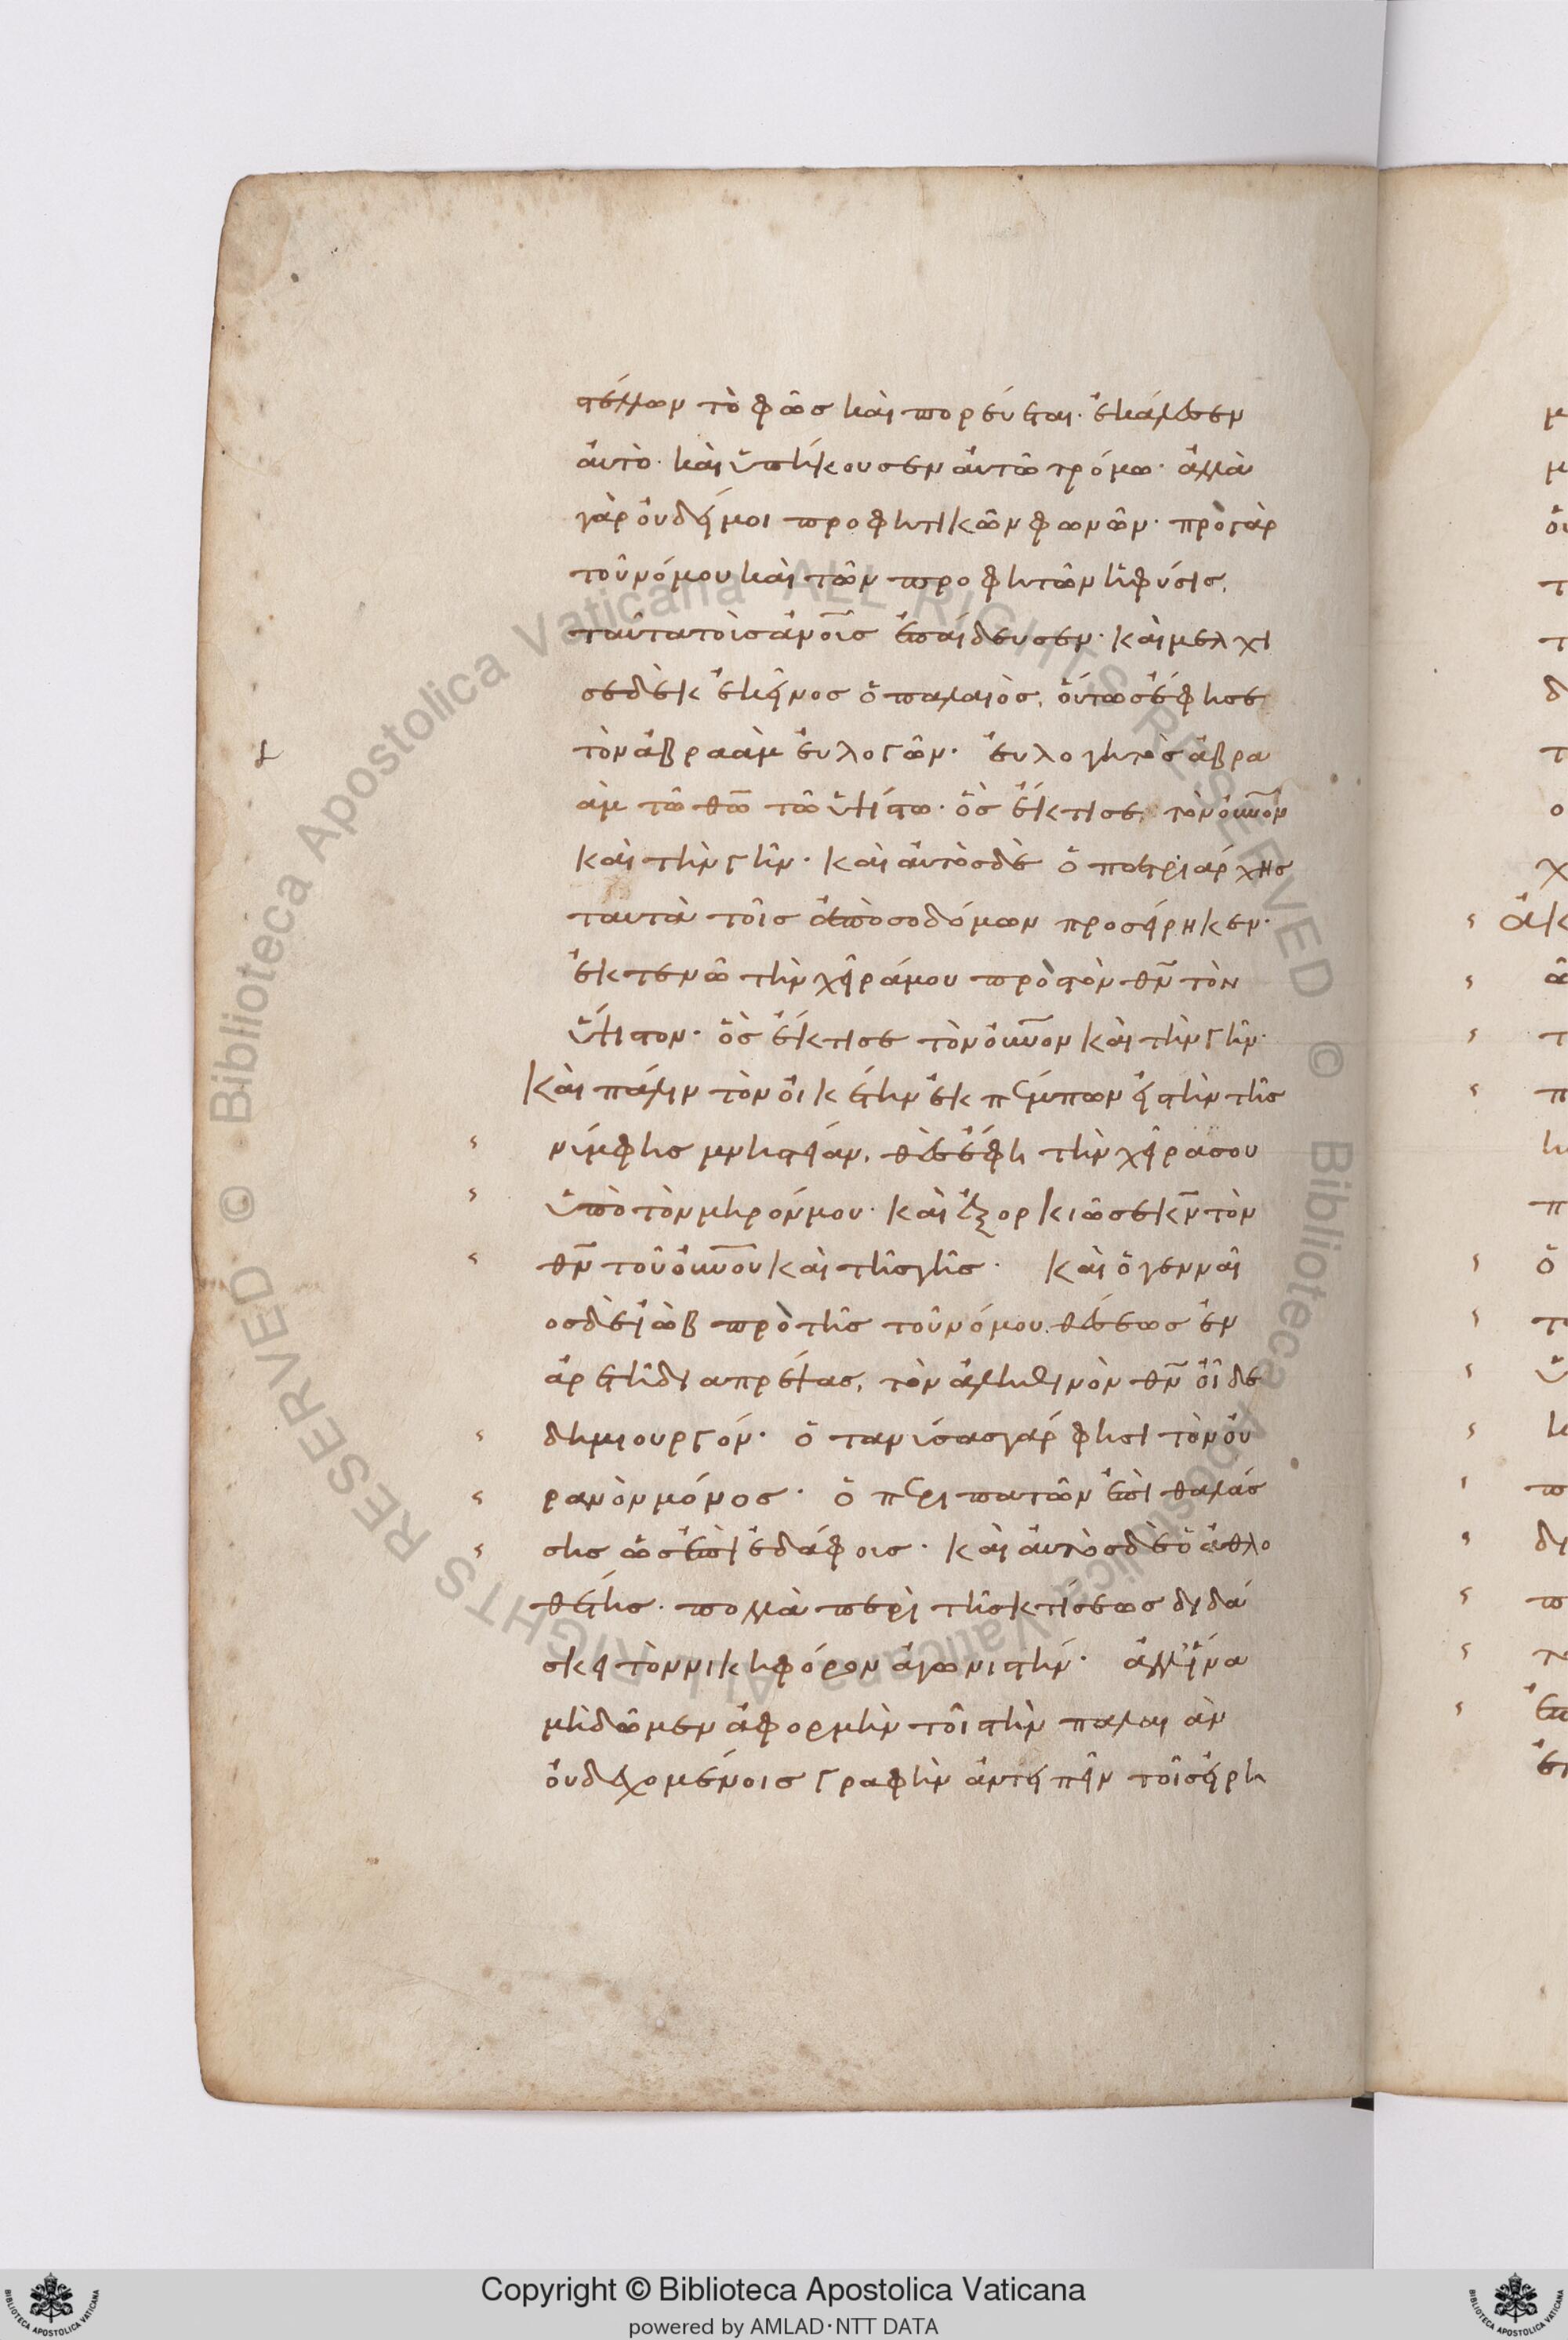 στέλλων τὸ φῶς καὶ πορεύεται· ἐκάλεσεν
ἀυτὸ· καὶ ὑπήκουσεν ἀυτῶ τρόμω· ἀλλὰ
γὰρ οὐ δεῖ μοι προφητικῶν φωνῶν· πρὸ γὰρ
τοῦ νόμου καὶ τῶν προφητῶν ἡ φύσις,
ταῦτα τοῖς ἀν̅οις ἐπαίδευσεν· καὶ μελχι
σεδὲκ ἐκεῖνος ὁ παλαιὸς, οὕτως ἔφησε
τὸν ἀβραὰμ ἐυλογῶν· ἐυλογητὸς ἀβρα
ὰμ τῶ θ̅ω τῶ ὑψίστω· ὃς ἔκτισε τὸν ὀυν̅ον
καὶ τὴν γῆν· καὶ ἀυτὸς δὲ ὁ πατριάρχης
ταυτὰ τοῖς ἀπὸ σοδόμων προσείρηκεν·
ἐκτενῶ τὴν χεῖρά μου πρὸς τὸν θ̅ν τὸν
ὕψιστον· ὃς ἔκτισε τὸν ὀυν̅ον καὶ τὴν γῆν·
Καὶ πάλιν τὸν οἰκέτην ἐκπέμπων εἰς τὴν τῆς
νύμφης μνηστείαν, θὲς ἔφη τὴν χεῖρα σου
ὑπὸ τὸν μηρόν μου· καὶ ἐξορκιῶ σε κ̅ν τὸν
θ̅ν τοῦ ὀυν̅ου καὶ τῆς γῆς· Καὶ ὁ γενναῖ
ος δὲ ἰὼβ πρὸ τῆς τοῦ νόμου θέσεως ἐν
ἀρετῆ διαπρέψας, τὸν ἀληθινὸν θ̅ν οἶδε
δημιουργόν· ὁ τανύσας γάρ φησι τὸν ὀυ
ρανὸν μόνος· ὁ περιπατῶν ἐπὶ θαλάσ
σης ὡς ἐπὶ ἐδάφοις· καὶ ἀυτὸς δὲ ὁ ἀθλο
θέτης· πολλὰ περὶ τῆς κτίσεως διδά
σκει τὸν νικηφόρον ἀγωνιστήν· ἀλλ' ἵνα
μὴ δῶμεν ἀφορμὴν τοῖς τὴν παλαιὰν
οὐ δεχομένοις γραφὴν ἀντειπεῖν τοῖς εἰρη